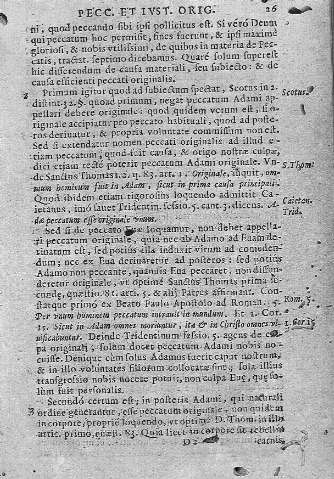 PECC. ET IVST. ORIG. 26
ni, quod peccando sibi ipsi pollicitus est. Si verò Deum
qui peccatum hoc permisit, fines fuerunt, & ipsi maximè
gloriosi, & nobis vtilissimi, de quibus in materia de Pec-
catis, tractat. septimo dicebamus. Quare solum superest
hic differendum de causa materiali, seu subiecto: & de
causa efficienti peccati originalis.
2 Primum igitur quod ad subiectum spectat, Scotus in 2. Scotus.
distinct. 32. §. quoad primum, negat peccatum Adami ap-
pellari debere originale: quod quidem verum est, si o-
riginale accipiatur pro peccato habituali, quod ad poste-
ros deriuatur, & propria voluntate commissum non est.
Sed si extendatur nomen peccati originalis ad illud e-
tiam peccatum, quod fuit causa, & origo nostræ culpæ,
dici etiam rectè poterit peccatum Adami originale. Vn-
de Sanctus Thomas 1. 2. q. 83. art. 1. Originale, inquit, om- S. Thom.
nium hominum fuit in Adam, sicut in prima causa principali.
Quod ibidem etiam rigorosius loquendo admittit Ca- Caietan.
ietanus, imò fauet Tridentin. sessio. 5. cant. 3. dicens. A- Trid.
da peccatum esse originale vnum.
Sed si de peccato Euæ loquamur, non debet appella-
ri peccatum originale, quia nec ab Adamo ad Euam de-
riuatum est, sed potius illa induxit virum ad comeden-
dum; nec ex Eua deriuaretur ad posteros: sed potius
Adamo non peccante, quamuis Eua peccaret, non diffun-
deretur originale, vt optimè Sanctus Thomas prima se-
cundę, quæst. 81. art. 5. & alij Patres affirmant. Con-
statque primo ex Beato Paulo Apostolo ad Roman. 5. Rom. 5.
Per vnum hominem peccatum intrauit in mundum. Et 1. Cor.
15. Sicut in Adam omnes moriuntur, ita & in Christo omnes vi- 1. Cor. 15
uificabuntur. Deinde Tridentinum sessio. 5. agens de cul-
pa originali, solum docet peccatum Adami nobis no-
cuisse. Denique cum solus Adamus fuerit caput nostrum,
& in illo voluntates filiorum collocatæ sint; sola illius
transgressio nobis nocere potuit, non culpa Euę, quę so-
lum fuit personalis.
3 Secundò certum est; in posteris Adami, qui naturali
ordine generantur, esse peccatum originale, non quidem
in corpore, propriè loquendo, vt optimè D. Thom. in illo
artic. primo, quæst. 83. Quia licet in corpore sit rebellio
D 2 carnis,